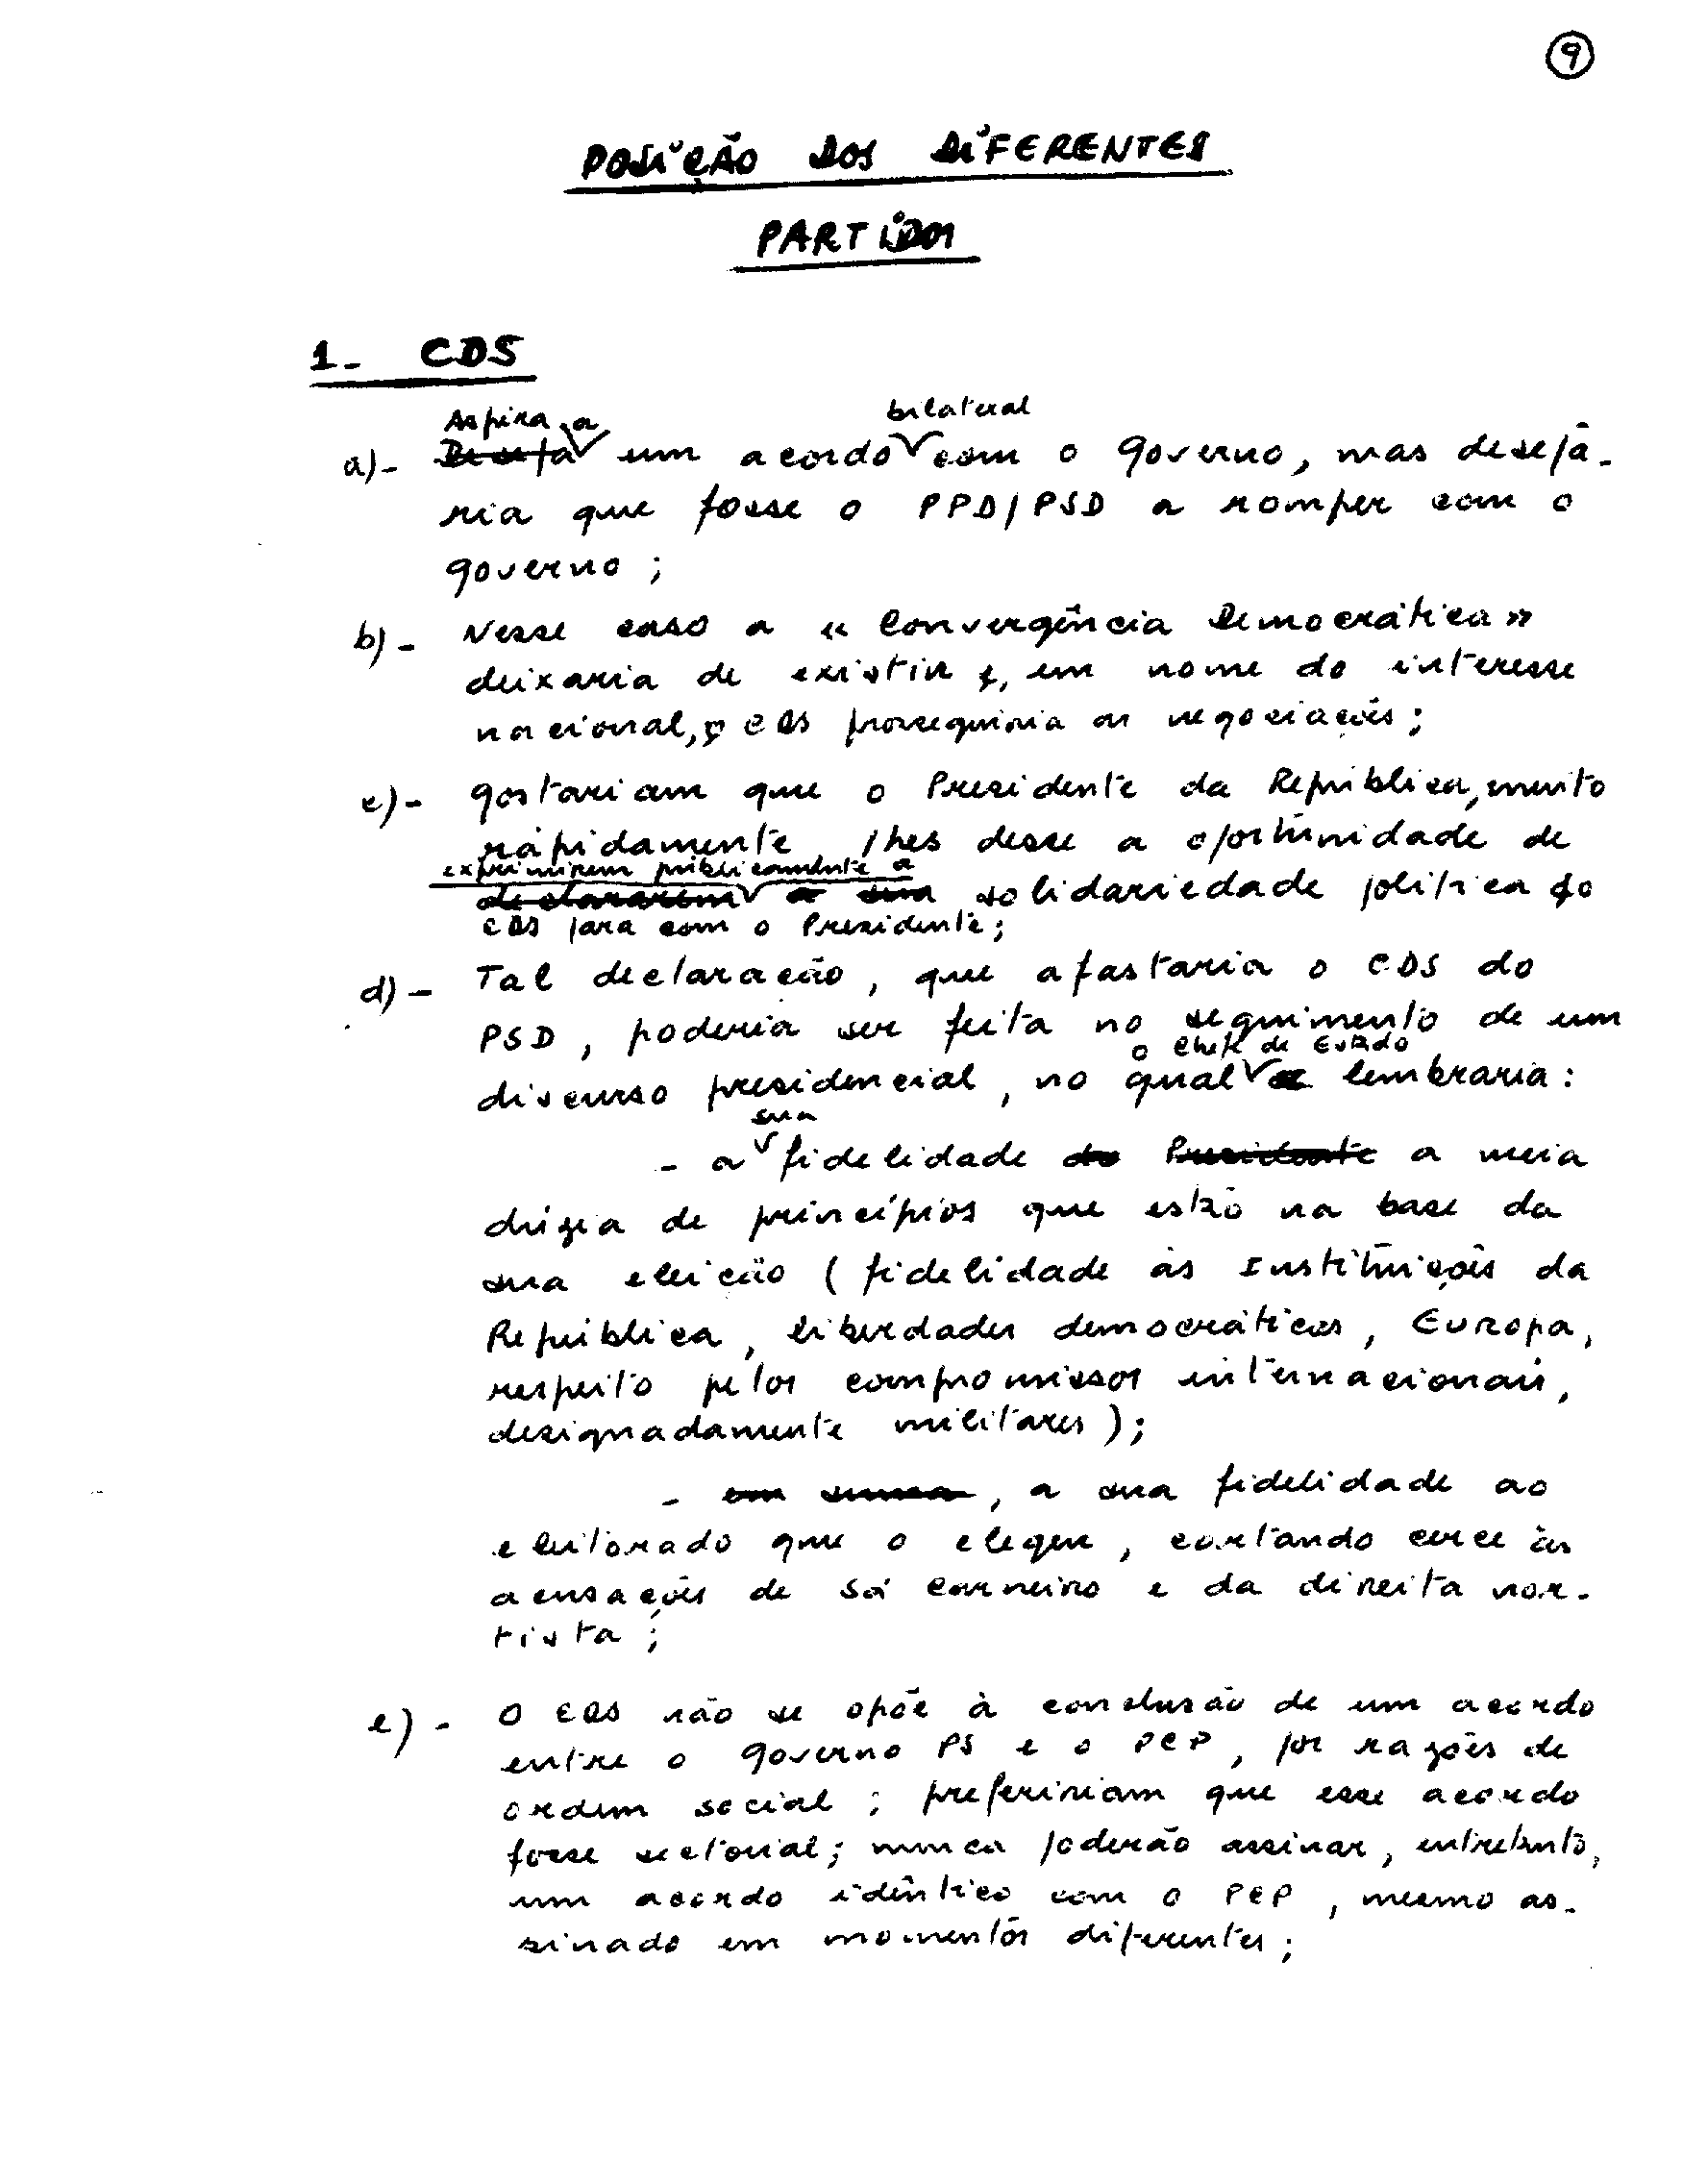 9
POSIÇÃO DOS DIFERENTES
PARTIDOS
1- CDS
Aspira a bilateral
a)- Deseja um acordo com o governo, mas deseja-
ria que fosse o PPD/PSD a romper com o
governo;
b)- Nesse caso a « Convergência Democrática »
deixaria de existir e, em nome do interesse
nacional, o CDS prosseguiria as negociações;
c)- gostariam que o Presidente da República, muito
rapidamente, lhes desse a oportunidade de
exprimirem publicamente a
declararem a sua solidariedade política do
CDS para com o Presidente;
d)- Tal declaração, que afastaria o CDS do
PSD, poderia ser feita no seguimento de um
o Chefe de Estado
discurso presidencial, no qual lembraria:
sua
- a fidelidade do Presidente a meia
dúzia de princípios que estão na base da
sua eleição (fidelidade às Instituições da
República, liberdades democráticas, Europa,
respeito pelos compromissos internacionais,
designadamente militares);
- em suma, a sua fidelidade ao
eleitorado que o elegeu, cortando cerce às
acusações de Sá Carneiro e da direita nor-
tista;
e)- O CDS não se opõe à conclusão de um acordo
entre o governo PS e o PCP, por razões de
ordem social; prefeririam que esse acordo
fosse sectorial; nunca poderão assinar, entretanto,
um acordo idêntico com o PCP, mesmo as-
sinado em momentos diferentes;